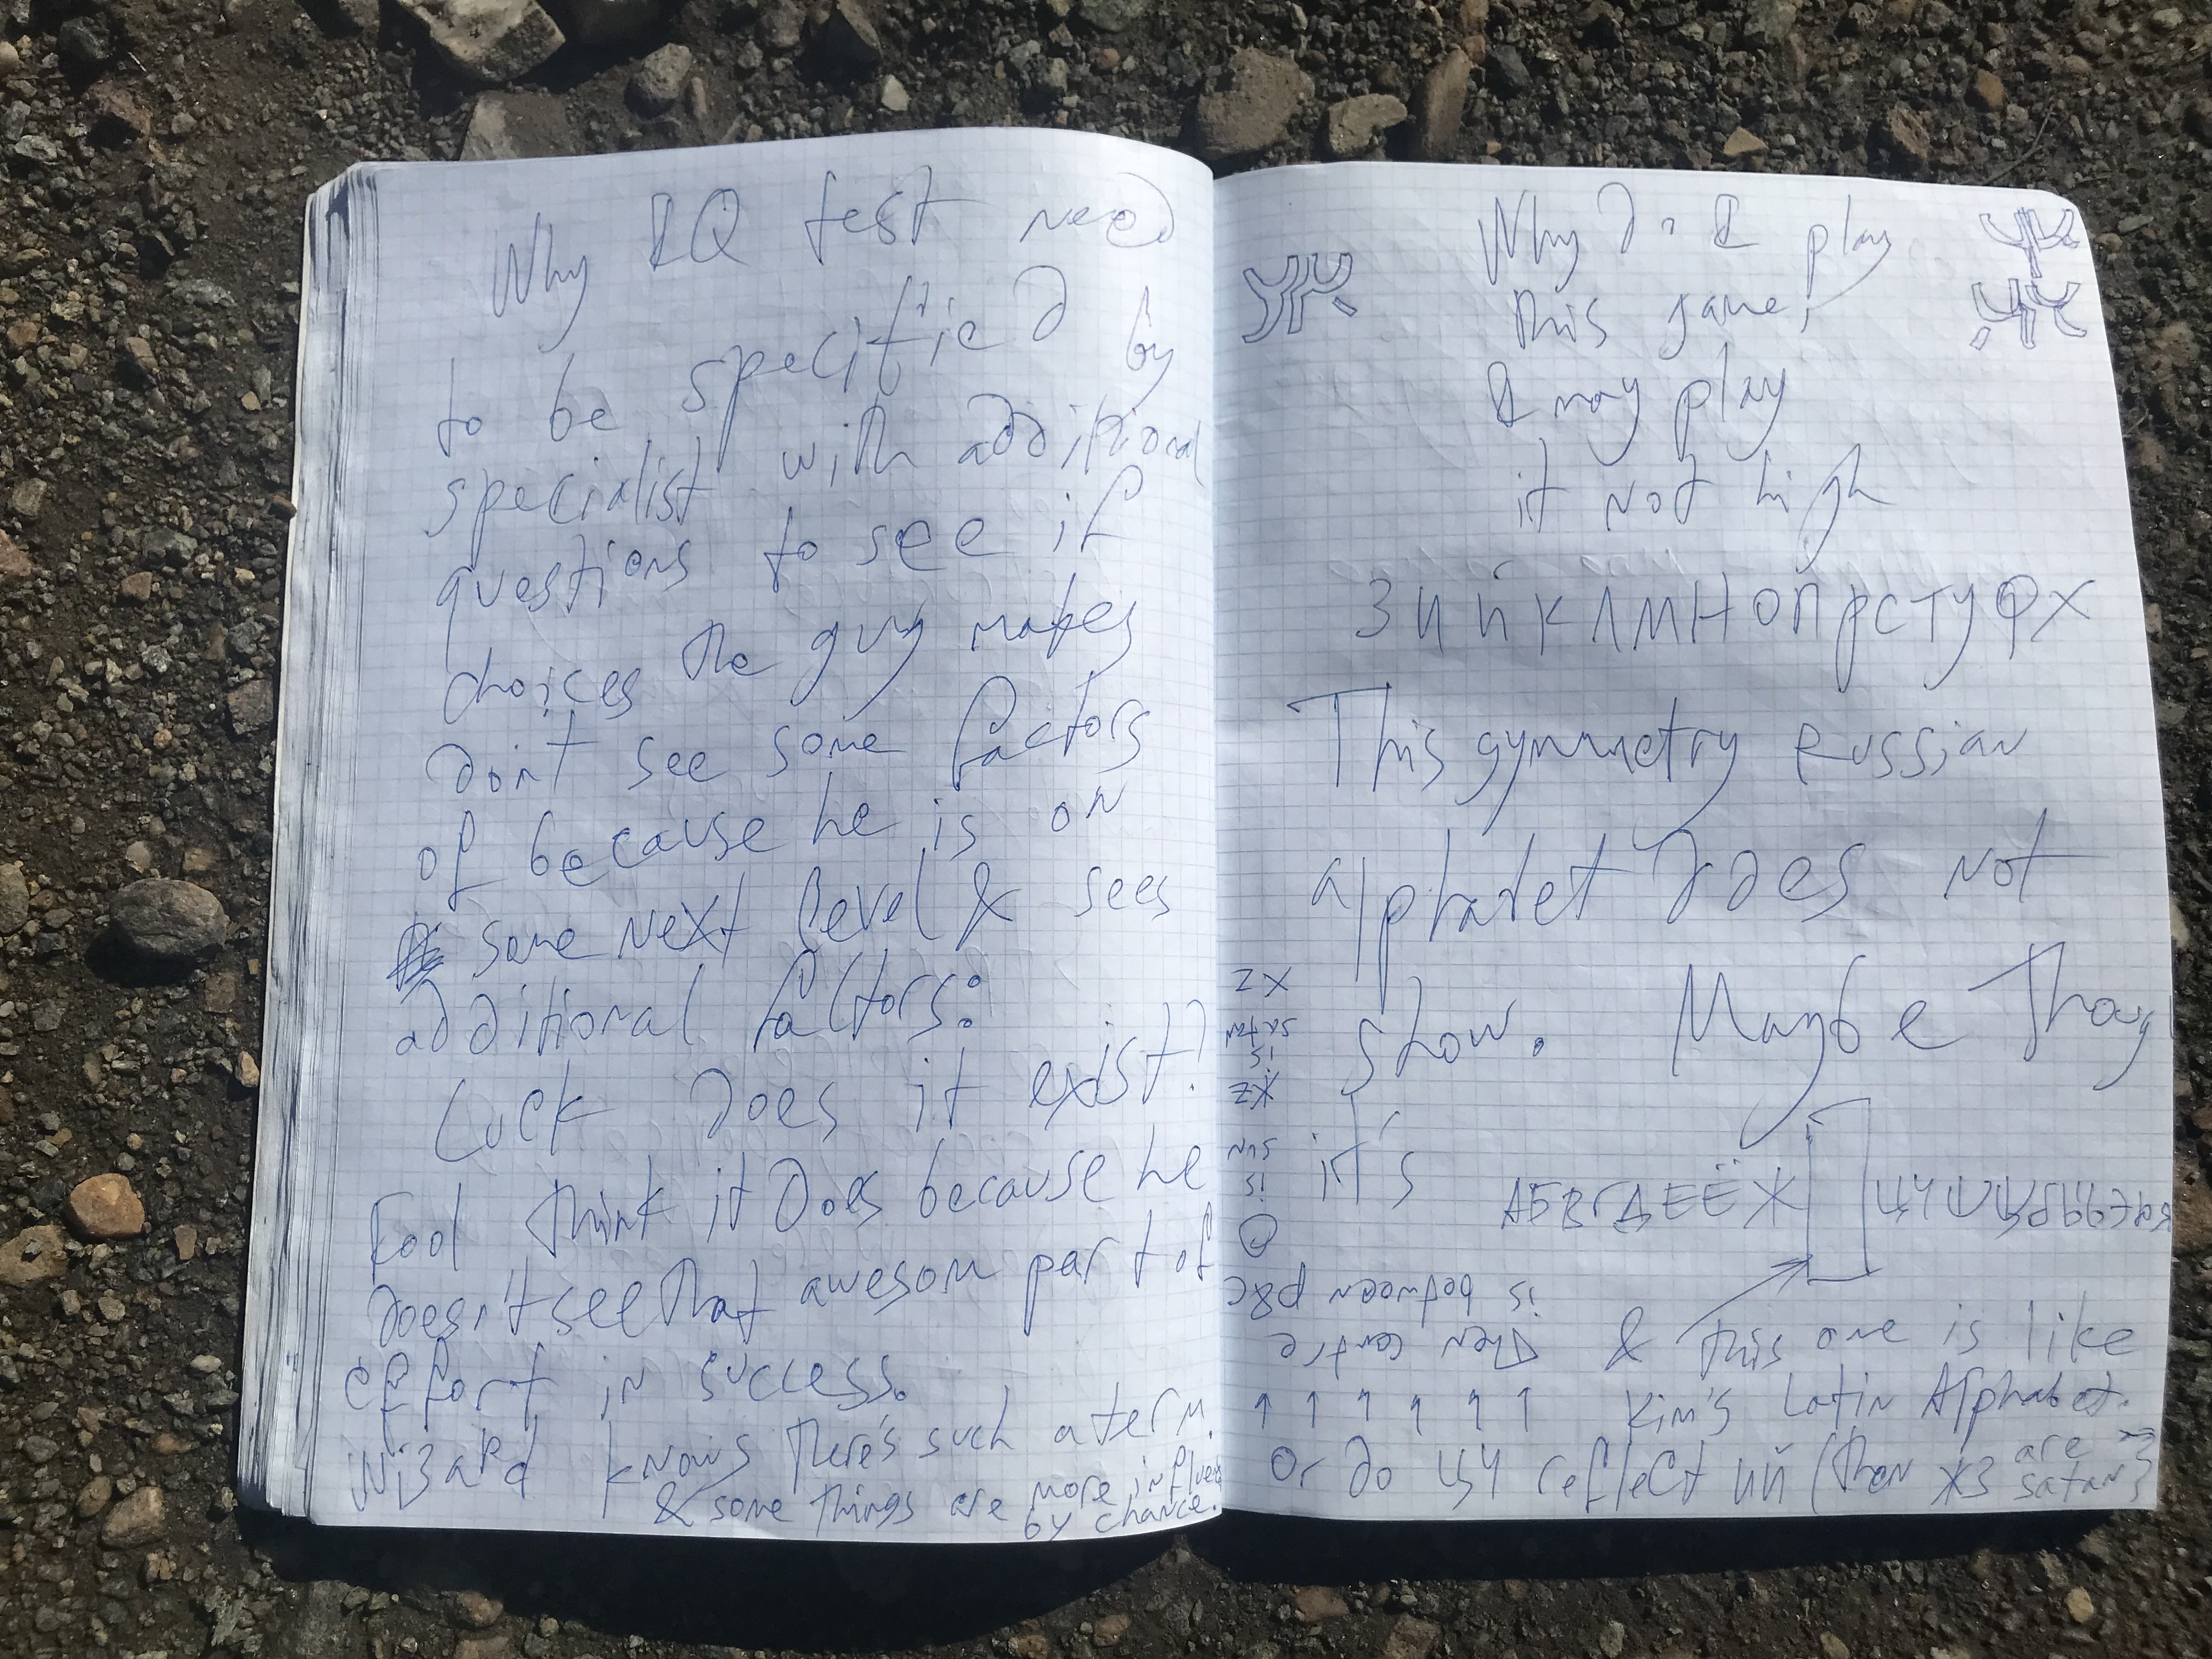 Why IQ test need
to be specific & by
specialist with additional
questions to see if
choices the guy makes
don't see some factors
of because he is on
same next level & sees
additional factors.
Luck does it exist?
Fool think it does because he
doesn't see that awesom part of
effort in success.
Wizard knows there's such a term
& some things are more influed
by chance.
Why do I play
this game,
I may play
it not high
З И Й К Л М Н О П Р С Т У Ф Х
This symmetry Russian
alphabet does not
show. Maybe they
ZX
it's АБВГДЕЁЖ ЦЧШЩЪЫЬЭЮЯ
is
sun
& this one is like
Kim's Latin Alphabet.
Or do ЦЧ reflect ИЙ (then ХЗ are